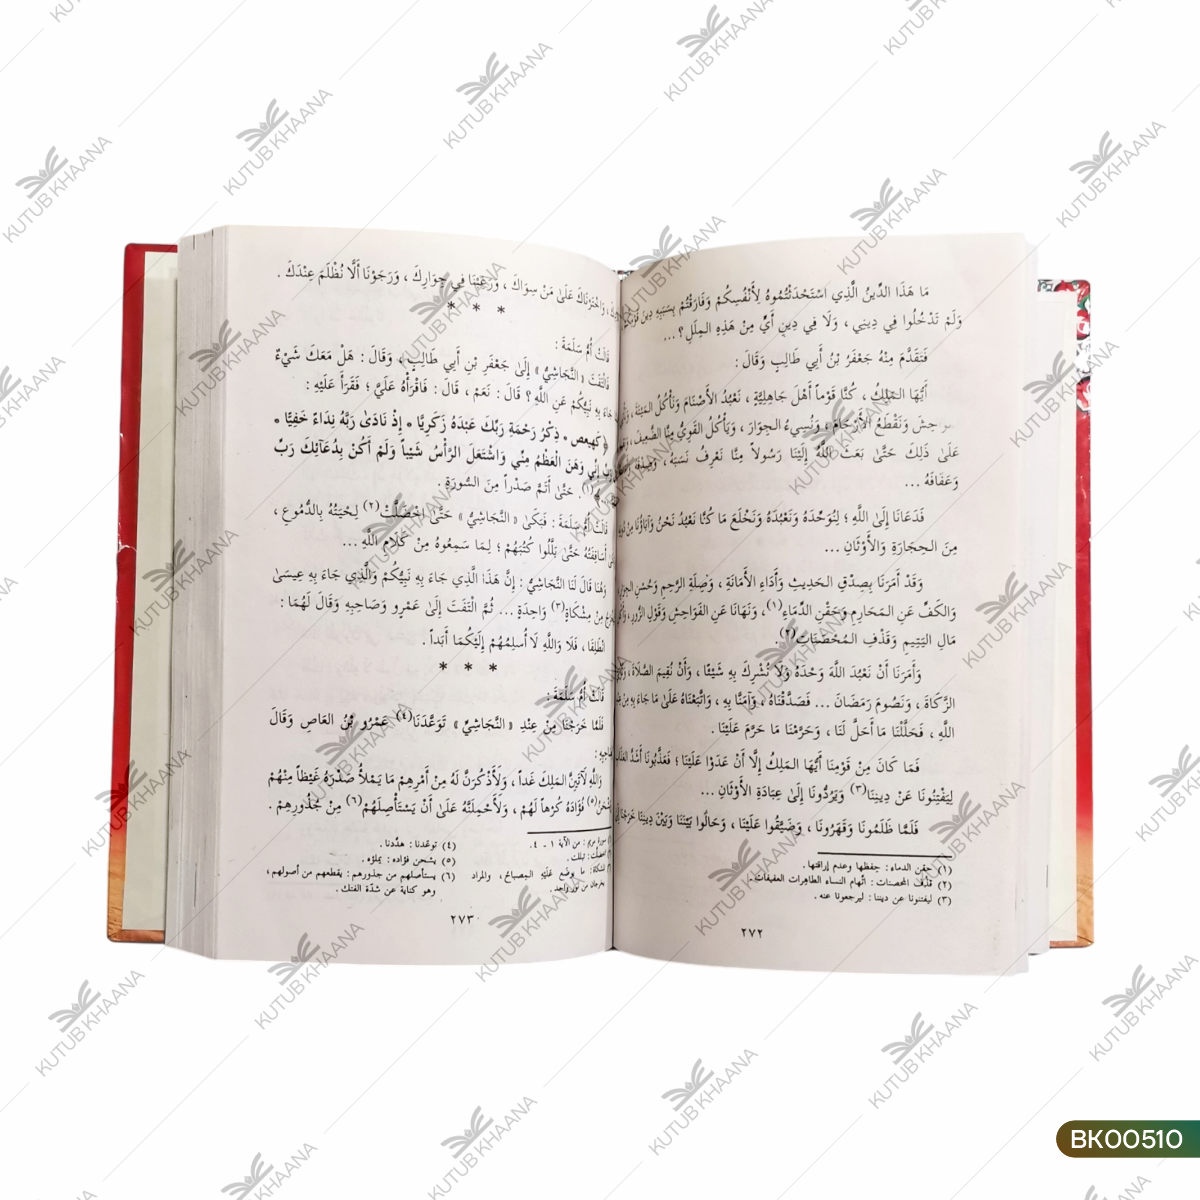 ما هَذَا الدِّينُ الَّذِي اسْتَحْدَثْتُمُوهُ لِأَنْفُسِكُمْ وَفَارَقْتُمْ بِسَبَبِهِ دِينَ
وَلَمْ تَدْخُلُوا فِي دِينِي ، وَلَا فِي دِينِ أَيٍّ مِنْ هَذِهِ المِلَلِ ؟ ...
فَتَقَدَّمَ مِنْهُ جَعْفَرُ بْنُ أَبِي طَالِبٍ وَقَالَ :
أَيُّهَا المَلِكُ ، كُنَّا قَوْماً أَهْلَ جَاهِلِيَّةٍ ، نَعْبُدُ الأَصْنَامَ وَنَأْكُلُ المَيْتَةَ ،
وَنَقْطَعُ الأَرْحَامَ ، وَنُسِيءُ الجِوَارَ ، وَيَأْكُلُ القَوِيُّ مِنَّا الضَّعِيفَ ،
عَلَىٰ ذَلِكَ حَتَّىٰ بَعَثَ اللَّهُ إِلَيْنَا رَسُولاً مِنَّا نَعْرِفُ نَسَبَهُ ، وَصِدْقَهُ
وَعَفَافَهُ ...
فَدَعَانَا إِلَىٰ اللَّهِ ؛ لِنُوَحِّدَهُ وَنَعْبُدَهُ وَنَخْلَعَ مَا كُنَّا نَعْبُدُ نَحْنُ وَآبَاؤُنَا مِنْ
مِنَ الحِجَارَةِ وَالأَوْثَانِ ...
وَقَدْ أَمَرَنَا بِصِدْقِ الحَدِيثِ وَأَدَاءِ الأَمَانَةِ ، وَصِلَةِ الرَّحِمِ وَحُسْنِ
وَالكَفِّ عَنِ المَحَارِمِ وَحَقْنِ الدِّمَاءِ(١) ، وَنَهَانَا عَنِ الفَوَاحِشِ وَقَوْلِ الزُّورِ ،
مَالِ اليَتِيمِ وَقَذْفِ المُحْصَنَاتِ(٢) .
وَأَمَرَنَا أَنْ نَعْبُدَ اللَّهَ وَحْدَهُ وَلَا نُشْرِكَ بِهِ شَيْئًا ، وَأَنْ نُقِيمَ الصَّلَاةَ ،
الزَّكَاةَ ، وَنَصُومَ رَمَضَانَ ... فَصَدَّقْنَاهُ ، وَآمَنَّا بِهِ ، وَاتَّبَعْنَاهُ عَلَىٰ مَا جَاءَ بِهِ مِنْ
اللَّهِ ، فَحَلَّلْنَا مَا أَحَلَّ لَنَا ، وَحَرَّمْنَا مَا حَرَّمَ عَلَيْنَا .
فَمَا كَانَ مِنْ قَوْمِنَا أَيُّهَا المَلِكُ إِلَّا أَنْ عَدَوْا عَلَيْنَا ؛ فَعَذَّبُونَا أَشَدَّ
لِيَفْتِنُونَا عَنْ دِينِنَا(٣) وَيَرُدُّونَا إِلَىٰ عِبَادَةِ الأَوْثَانِ ...
فَلَمَّا ظَلَمُونَا وَقَهَرُونَا ، وَضَيَّقُوا عَلَيْنَا ، وَحَالُوا بَيْنَنَا وَبَيْنَ دِينِنَا خَرَجْنَا
(١) حقن الدماء : حفظها وعدم إراقتها .
(٢) قذف المحصنات : اتهام النساء الطاهرات العفيفات .
(٣) ليفتنونا عن ديننا : ليرجعونا عنه .
٢٧٢
وَاخْتَرْنَاكَ عَلَىٰ مَنْ سِوَاكَ ، وَرَغِبْنَا فِي جِوَارِكَ ، وَرَجَوْنَا أَلَّا نُظْلَمَ عِنْدَكَ .
* * *
قَالَتْ أُمُّ سَلَمَةَ :
فَالْتَفَتَ « النَّجَاشِيُّ » إِلَىٰ جَعْفَرِ بْنِ أَبِي طَالِبٍ ، وَقَالَ : هَلْ مَعَكَ شَيْءٌ
جَاءَ بِهِ نَبِيُّكُمْ عَنِ اللَّهِ ؟ قَالَ : نَعَمْ ، قَالَ : فَاقْرَأْهُ عَلَيَّ ؛ فَقَرَأَ عَلَيْهِ :
﴿ كهيعص * ذِكْرُ رَحْمَةِ رَبِّكَ عَبْدَهُ زَكَرِيَّا * إِذْ نَادَىٰ رَبَّهُ نِدَاءً خَفِيًّا *
إِنِّي وَهَنَ الْعَظْمُ مِنِّي وَاشْتَعَلَ الرَّأْسُ شَيْباً وَلَمْ أَكُنْ بِدُعَائِكَ رَبِّ
(١) حَتَّىٰ أَتَمَّ صَدْراً مِنَ السُّورَةِ .
قَالَتْ أُمُّ سَلَمَةَ : فَبَكَىٰ « النَّجَاشِيُّ » حَتَّىٰ اخْضَلَّتْ(٢) لِحْيَتُهُ بِالدُّمُوعِ ،
أَسَاقِفَتُهُ حَتَّىٰ بَلَّلُوا كُتُبَهُمْ ؛ لِمَا سَمِعُوهُ مِنْ كَلَامِ اللَّهِ ...
وَهُنَا قَالَ لَنَا النَّجَاشِيُّ : إِنَّ هَذَا الَّذِي جَاءَ بِهِ نَبِيُّكُمْ وَالَّذِي جَاءَ بِهِ عِيسَىٰ
مِنْ مِشْكَاةٍ(٣) وَاحِدَةٍ ... ثُمَّ الْتَفَتَ إِلَىٰ عَمْرٍو وَصَاحِبِهِ وَقَالَ لَهُمَا :
انْطَلِقَا ، فَلَا وَاللَّهِ لَا أُسْلِمُهُمْ إِلَيْكُمَا أَبَداً .
* * *
قَالَتْ أُمُّ سَلَمَةَ :
فَلَمَّا خَرَجْنَا مِنْ عِنْدِ « النَّجَاشِيِّ » تَوَعَّدَنَا(٤) عَمْرُو بْنُ العَاصِ وَقَالَ
لِصَاحِبِهِ :
وَاللَّهِ لَآتِيَنَّ المَلِكَ غَداً ، وَلَأَذْكُرَنَّ لَهُ مِنْ أَمْرِهِمْ مَا يَمْلَأُ صَدْرَهُ غَيْظاً مِنْهُمْ
يَشْحَنُ(٥) فُؤَادَهُ كُرْهاً لَهُمْ ، وَلَأَحْمِلَنَّهُ عَلَىٰ أَنْ يَسْتَأْصِلَهُمْ(٦) مِنْ جُذُورِهِمْ .
سورة مريم : من الآية ١ - ٤ .
اخضلت : تبللت .
المشكاة : ما يوضع عَلَيْهِ المِصباح ، والمراد
يخرجان من نور واحد .
(٤) توعّدنا : هدّدنا .
(٥) يشحن فؤاده : يملؤه .
(٦) يستأصلهم من جذورهم : يقطعهم من أصولهم ،
وهو كناية عن شدّة الفتك .
٢٧٣
KUTUB KHAANA
BK00510